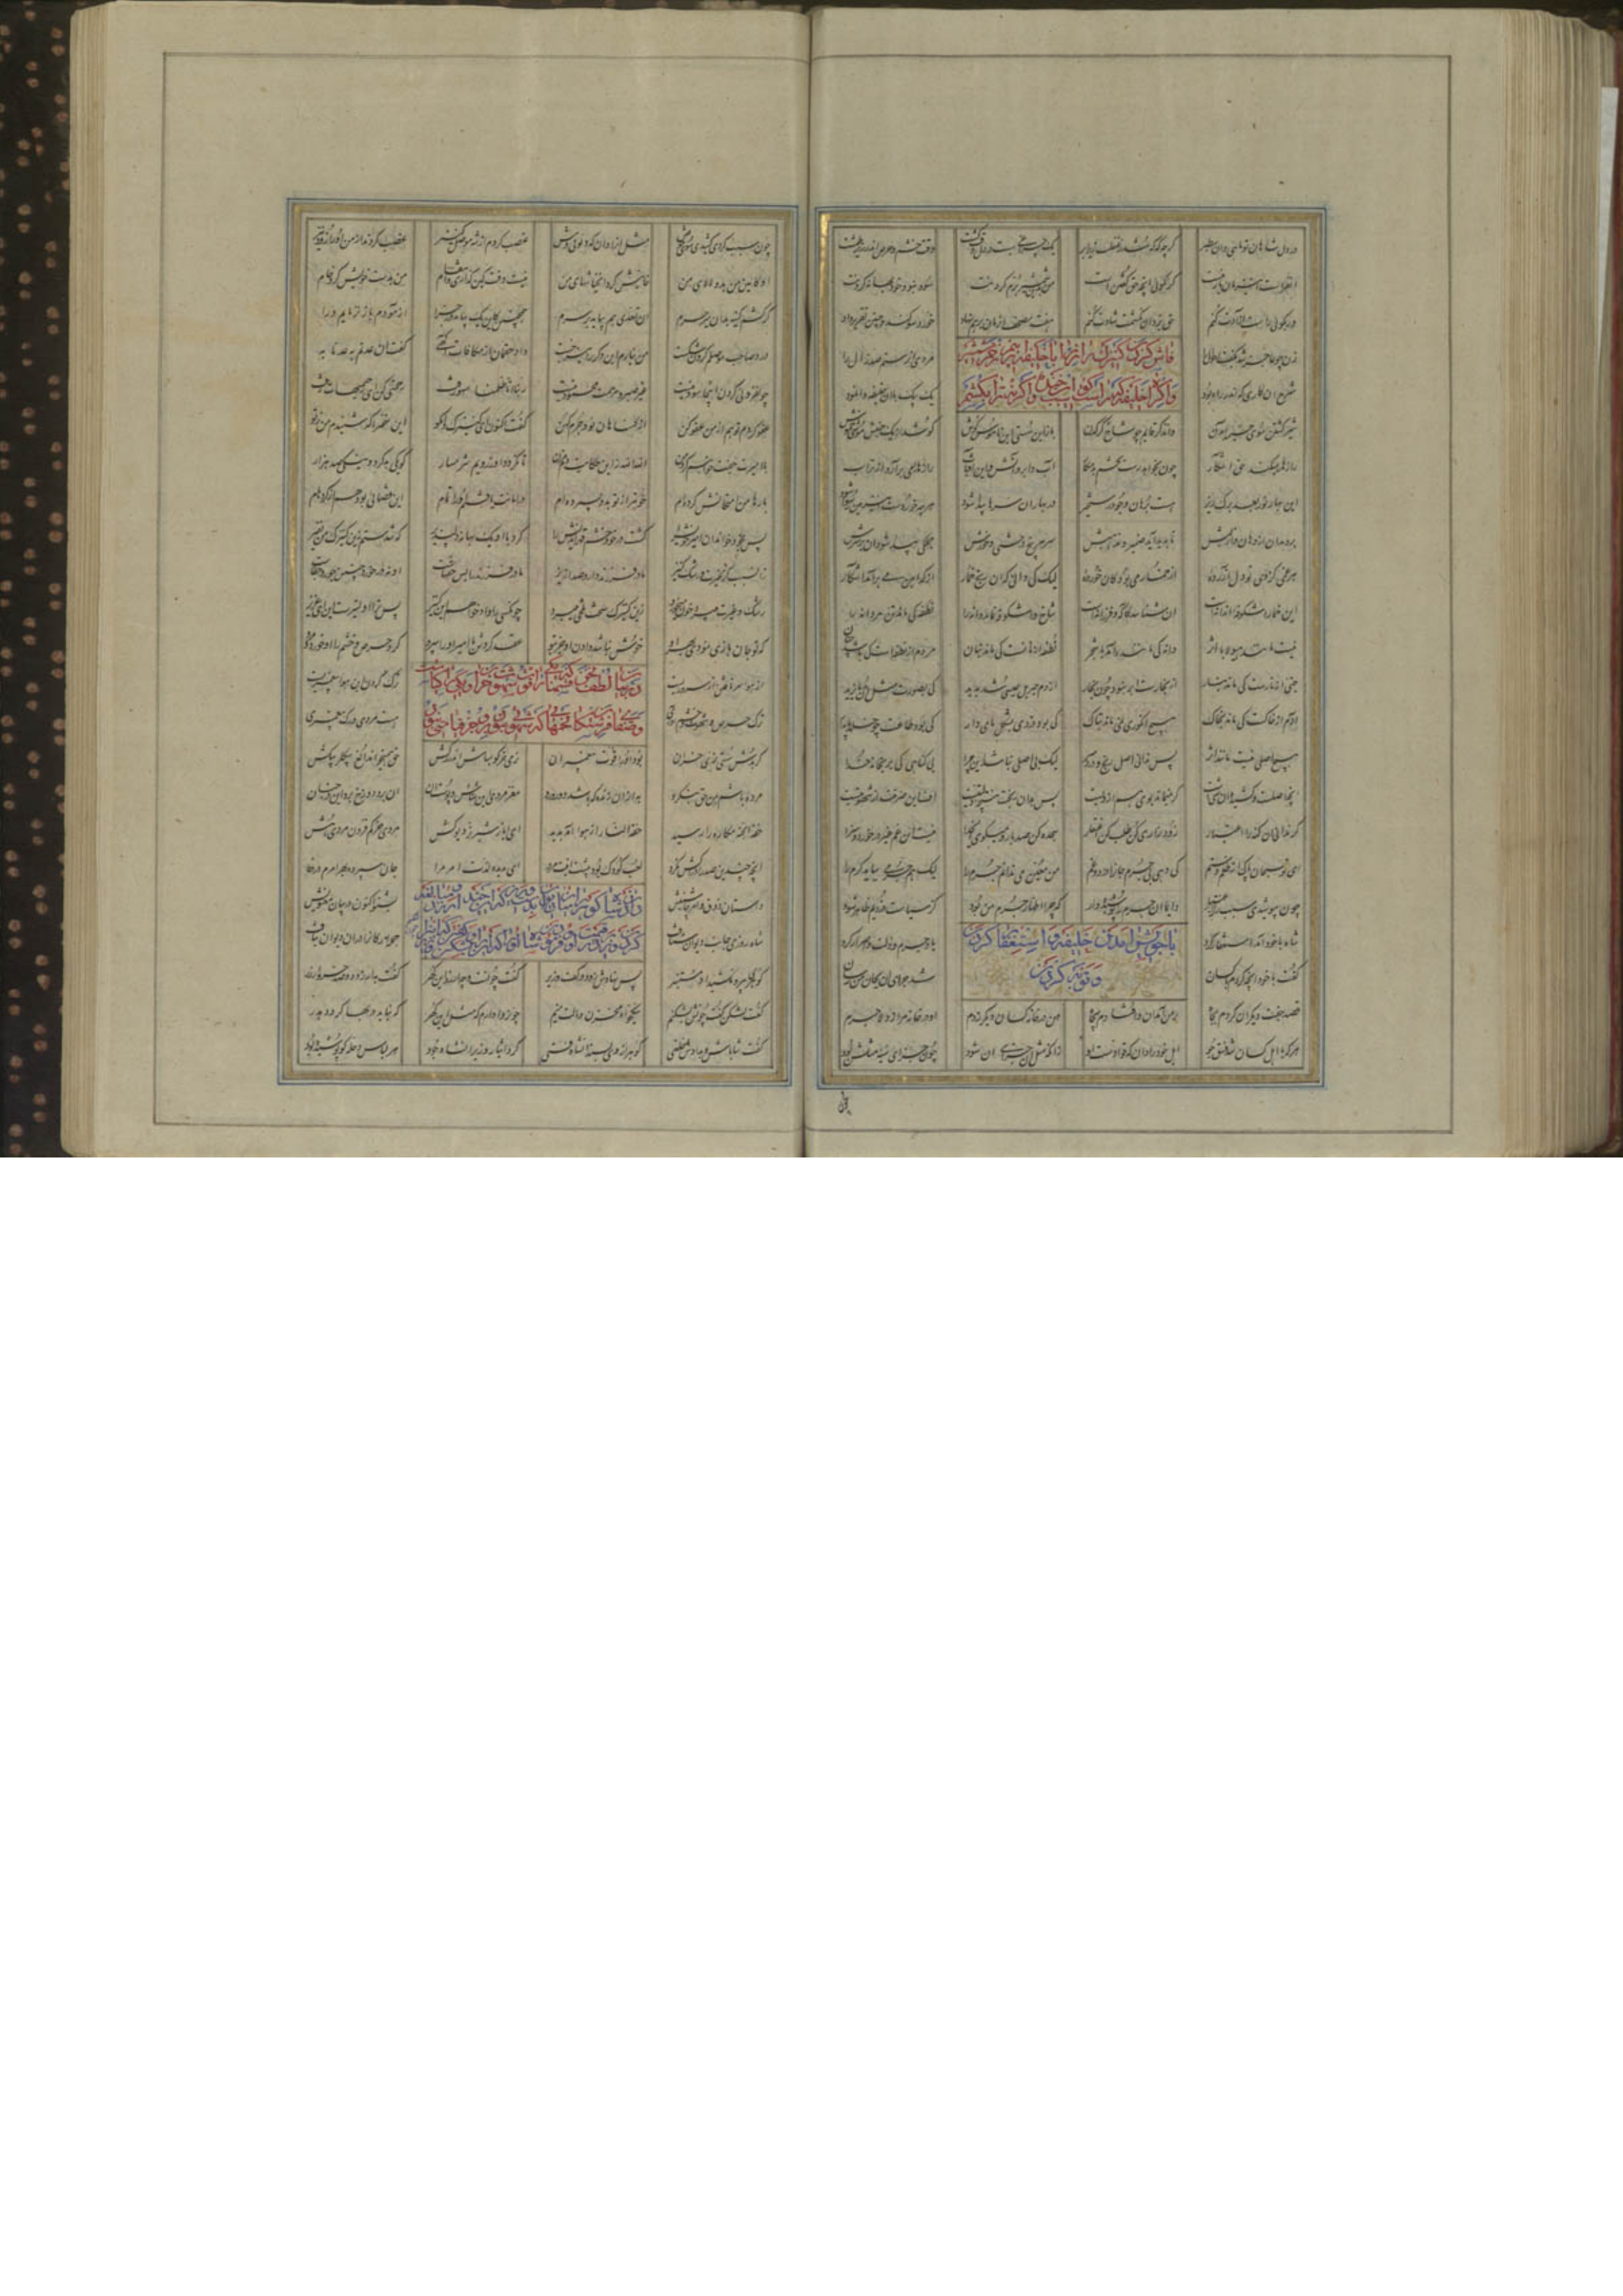 در دل شاهان تو ماهی دان سطبر گرچه گه گه شد ز غفلت زیر ابر یک چراغی هست در دل وقت گشت وقت خشم و حرص اندر زیر طشت
آن فراست این زمان یار منست گر نگویی آنچه حق گفتن است من بدین شمشیر برم گردنت سود نبود خود بهانه کردنت
ور بگویی راست آزادت کنم حق یزدان نشکنم شادت کنم هفت مصحف آن زمان برهم نهاد خورد سوگند و چنین تقریر داد
فاش کردن کنیزک آن راز را با خلیفه از بیم زخم شمشیر
و اکراه خلیفه که راست گو سبب این خنده را و گرنه ترا بکشم
زن چو عاجز شد بگفت احوال را مردی آن رستم صد زال را
شرح آن که اندر راه بود یک بیک با آن خلیفه وا نمود
شیر کشتن سوی خیمه آمدن وان ذکر قایم چو شاخ کرگدن باز این سستی این ناموس گوش کو شد از یک خش خش موشی ز هوش
رازها را میکند حق آشکار چون بخواهد رست تخم بد مکار آب و ابر و آتش و این آفتاب رازها را می برآرد از تراب
این بهار نو ز بعد برگ ریز هست برهان وجود رستخیز در بهار آن سرها پیدا شود هر چه خوردست این زمین رسوا شود
بردمد آن از دهان و از لبش تا پدید آید ضمیر و مذهبش سر بیخ هر درختی و خورش جملگی پیدا شود آن بر سرش
هر غمی کز وی تو دل آزرده از خمار می بود کان خورده لیک کی دانی که آن رنج خمار از کدامین می برآمد آشکار
این خمار اشکوفه آن دانه است آن شناسد کاگه و فرزانه است شاخ و اشکوفه نماند دانه را نطفه کی ماند تن مردانه را
نیست مانندا هیولا با اثر دانه کی ماننده آمد با شجر نطفه از نانست کی ماند بنان مردم از نطفه است کی باشد چنان
جنی از نارست کی ماند بنار از بخارست ابر و نبود چون بخار از دم جبریل عیسی شد پدید کی بصورت مثل
آدم از خاکست کی ماند بخاک هیچ انگوری نمی ماند بتاک کی بود دزدی بشکل پای دار کی بود طاعت چو خلد پایدار
هیچ اصلی نیست مانند اثر پس ندانی اصل رنج و درد سر لیک بی اصلی نباشد این جزا بی گناهی کی برنجاند خدا
آنچه اصلست و کشنده آن شی است گر نمی ماند بوی هم از ویست پس بدان رنجت نتیجه زلتیست آفت این ضربتت از شهوتیست
گر ندانی آن گنه را ز اعتبار زود زاری کن طلب کن اغتفار سجده کن صد بار میگوی ای خدا نیست این غم غیر در خورد و سزا
ای تو سبحان پاک از ظلم و ستم کی دهی بی جرم جان را درد و غم من معین می ندانم جرم را لیک هم جرمی بباید گرم را
چون بپوشیدی سبب را ز اعتبار دایما آن جرم را پوشیده دار که جزا اظهار جرم من بود کز سیاست دزدیم ظاهر شود
شاه با خود آمد استغفار کرد یاد جرم و زلت و اصرار کرد
باخویش آمدن خلیفه و استغفار کردن
و توبه کردن
گفت با خود آنچه کردم با کسان شد جزای آن بجان من رسان
قصد جفت دیگران کردم ز جاه بر من آمد آن و افتادم بچاه من در خانه کسان دیگر زدم او در خانه مرا زد لاجرم
هر که با اهل کسان شد فسق جو اهل خود را دان که قوادست او زانکه مثل آن جزای آن شود چون جزای سیئه مثلش بود
چون
چون سبب کردی کشیدی سوی خویش مثل آن را غصب کردم از شه موصل کنیز غصب کردند از من او را زود نیز
او کامین من بد و لالای من خاینش کرد آن خیانتهای من نیست وقت کین گزاری و انتقام من بدست خویش کردم کار خام
گر کشم کینه بر آن میر و حرم آن تعدی هم بیاید بر سرم همچنان کاین یک بیامد در جزا آزمودم باز نزمایم ورا
درد صاحب موصلم گردن شکست من نیارم این دگر را نیز خست داد حقمان از مکافات آگهی گفت ان عدتم به عدنا به
چون فزونی کردن اینجا سود نیست غیر صبر و مرحمت محمود نیست ربنا انا ظلمنا سهو رفت رحمتی کن ای رحیمیهات زفت
عفو کردم تو هم از من عفو کن از گناهان نو و جرم کهن گفت اکنون ای کنیزک وا مگو این سخن را که شنیدم من ز تو
با امیرت جفت خواهم کرد من الله الله زین حکایت دم مزن تا نگردد او ز رویم شرمسار کو یکی بد کرد و نیکی صد هزار
بارها من امتحانش کرده ام خوبتر از تو بدو بسپرده ام در امانت یافتم او را تمام این قضایی بود هم از کرده هام
پس بخود خواند آن امیر خویش را کشت در خود خشم قهراندیش را کرد با او یک بهانه دلپذیر که شدستم زین کنیزک من نفیر
زان سبب کز غیرت و رشک کنیز مادر فرزند دارد صد ازیز مادر فرزند را بس حقهاست او نه در خورد چنین جور و جفاست
رشک و غیرت میبرد خون میخورد زین کنیزک سخت تلخی میبرد چون کسی را داد خواهم این کنیز پس ترا اولیترست این ای عزیز
که تو جان بازی نمودی بهر او خوش نباشد دادن او جز بتو عقد کردش با امیر او را سپرد کرد حرص و خشم را او خرد و مرد
در بیان آنکه نحن قسمنا که یکی را قوت و شهوت خران دهد و یکی را کیاست
و صفای فرشتگان تخمهایی که شهوتی نبود بر آن جز قیامتی نبود
ز هوا سر تافتن از سروریست ترک
ترک حرص و شهوت و خشم هست مردی و رگ پیغمبری
گر بدش سستی نری خران بود او را قوت پیغمبران نری خر گو مباش اندر رگش حق همی خواند الغ بگلربگش
مرده باشم بمن حق بنگرد به از آن زنده که باشد دور و رد مغز مردی این شناس و پوست آن آن برد دوزخ برد این در جنان
حفت الجنه مکاره را رسید حفت النار از هوا آمد پدید ای ایاز شیر نر دیوکش مردی خر کم فزون مردی هش
آنچه چندین صدر ادراکش نکرد لعب کودک بود پیشت اینت مرد ای بدیده لذت امر مرا جان سپرده بهر امرم در وفا
دادن شاه گوهر را میان دیوان بدست وزیر که این چند ارزد و مبالغه
کردن وزیر در قیمت او و فرمودن شاه او را که این را بشکن
داستان ذوق امر و چاشنیش بشنو اکنون در بیان معنویش
شاه روزی جانب دیوان شتافت جمله ارکان را در آن دیوان بیافت
گوهری بیرون کشید او مستنیر پس نهادش زود در کف وزیر گفت چونست و چه ارزد این گهر گفت به ارزد ز صد خروار زر
گفت بشکن گفت چونش بشکنم نیکخواه مخزن و مالت منم چون روا دارم که مثل این گهر که نیاید در بها گردد هدر
گفت شاباش و بدادش خلعتی گوهر از وی بستد آن شاه فتی کرد ایثار وزیر آن شاه جود هر لباس و حله کو پوشیده بود